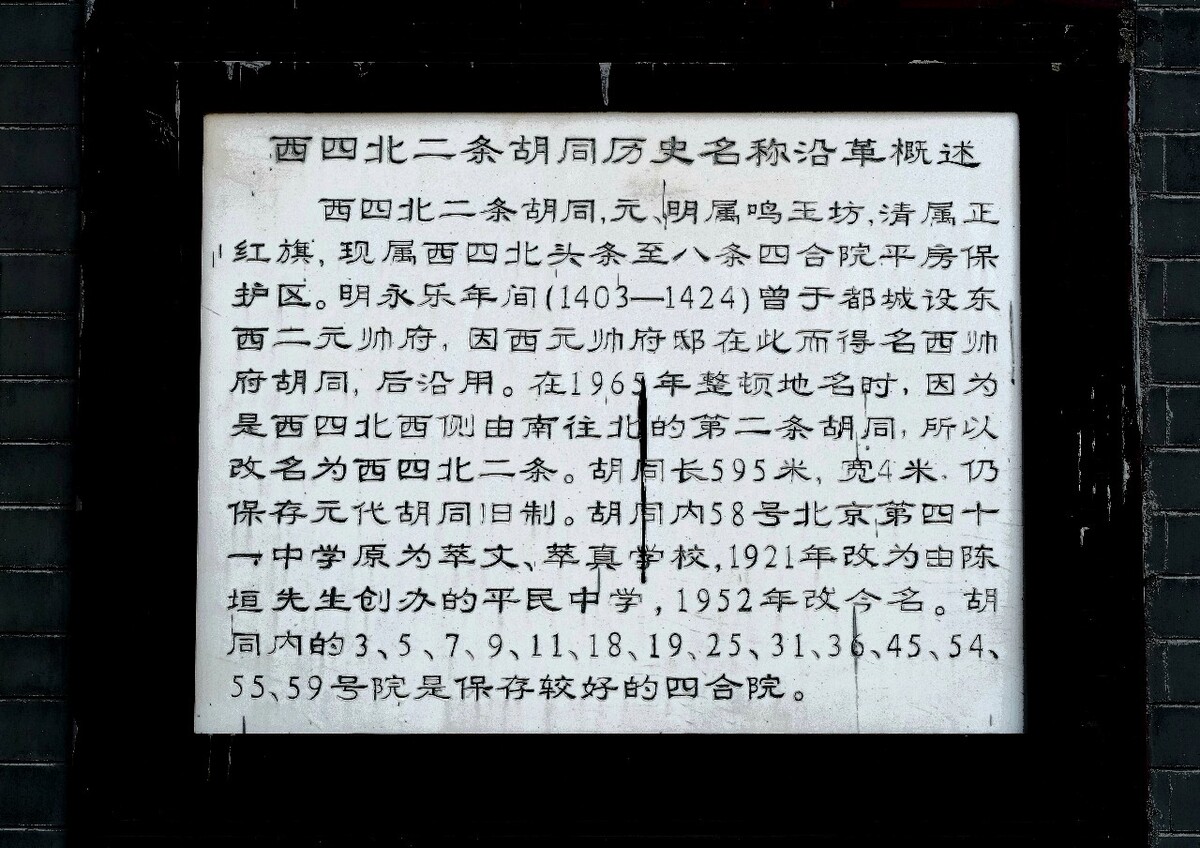 西四北二条胡同历史名称沿革概述
西四北二条胡同,元、明属鸣玉坊,清属正
红旗,现属西四北头条至八条四合院平房保
护区。明永乐年间(1403—1424)曾于都城设东
西二元帅府,因西元帅府邸在此而得名西帅
府胡同,后沿用。在1965年整顿地名时,因为
是西四北西侧由南往北的第二条胡同,所以
改名为西四北二条。胡同长595米,宽4米,仍
保存元代胡同旧制。胡同内58号北京第四十
一中学原为萃文、萃真学校,1921年改为由陈
垣先生创办的平民中学,1952年改今名。胡
同内的3、5、7、9、11、18、19、25、31、36、45、54、
55、59号院是保存较好的四合院。